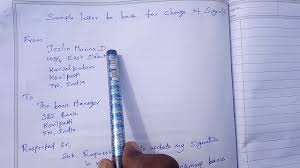 Sample letter to bank for change of Signat
From
Jeslin Marina D
East Street
Kovilpatti
TN, India
To
The bank Manager
SBI Bank
Kovilpatti
TN, India
Respected Sir,
Sub: Request to update my Signature
in my bank